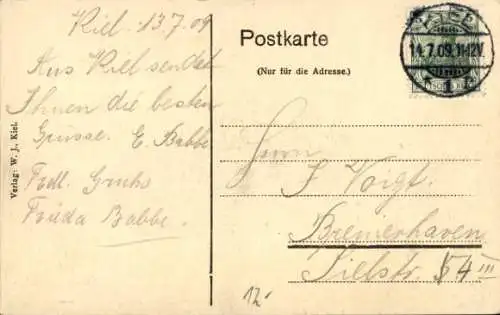 Kiel 13.7.09
Aus Kiel sendet
Ihnen die besten
Grüsse. E. Babbe
Frdl. Gruhs
Frieda Babbe.
Verlag: W. J., Kiel.
Postkarte
(Nur für die Adresse.)
KIEL
14.7.09. 11-12V.
1
Herrn
J. Voigt.
Bremerhaven
Sielstr. 54 III
12.